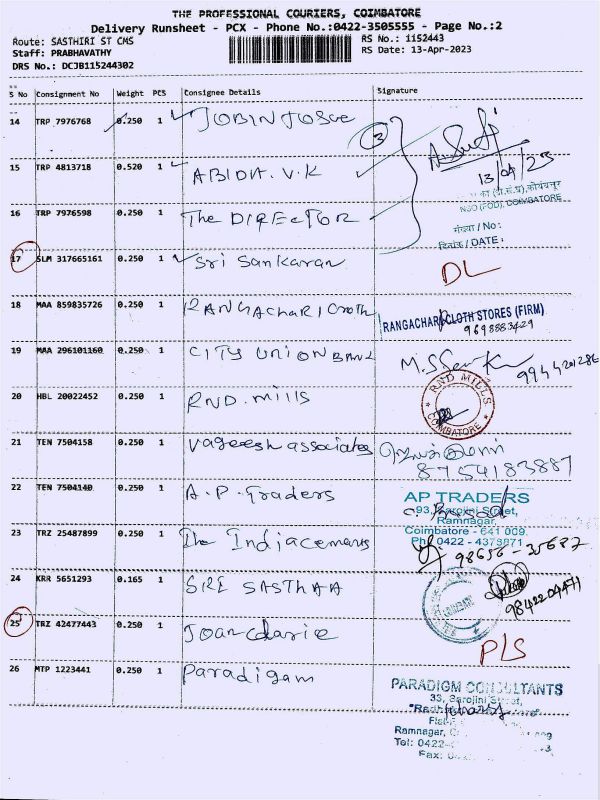 THE PROFESSIONAL COURIERS, COIMBATORE
Delivery Runsheet - PCX - Phone No.:0422-3505555 - Page No.:2
Route: SASTHIRI ST CMS
RS No.: 1152443
Staff: PRABHAVATHY
RS Date: 13-Apr-2023
DRS No.: DCJB115244302
S No Consignment No Weight PCS Consignee Details Signature
14 TRP 7976768 0.250 1 JOBIN JOSE
3
13/04/23
15 TRP 4813718 0.520 1 ABIDA.V.K
का (क्षे.सं.प्र),कोयंबत्तूर
NSO (FOD), COIMBATORE
16 TRP 7976598 0.250 1 The DIRECTOR
संख्या / No :
दिनांक / DATE :
17 SLM 317665161 0.250 1 Sri Sankaran DL
18 MAA 859835726 0.250 1 RANGAChARI Cloth RANGACHARI CLOTH STORES (FIRM)
9698883429
19 MAA 296101160 0.250 1 CITY UNION BANK
20 HBL 20022452 0.250 1 RND.mills RND MILLS
COIMBATORE
21 TEN 7504158 0.250 1 Vageesh associates
8754183887
22 TEN 7504140 0.250 1 A.P.Traders AP TRADERS
93, Sarojini Street,
Ramnagar,
Coimbatore - 641 009.
Ph: 0422 - 4378871
23 TRZ 25487899 0.250 1 The Indiacements
98656-35687
24 KRR 5651293 0.165 1 SRE SASTHAA
25 TRZ 42477443 0.250 1 PLS
26 MTP 1223441 0.250 1 Paradigam PARADIGM CONSULTANTS
33, Sarojini Street,
Ramnagar,
Tel: 0422-
Fax: